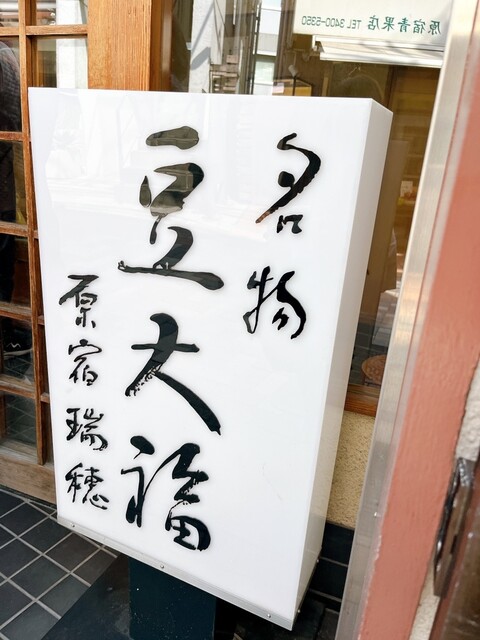 名物
豆大福
原宿瑞穂
原宿青果店 TEL 3400-5350